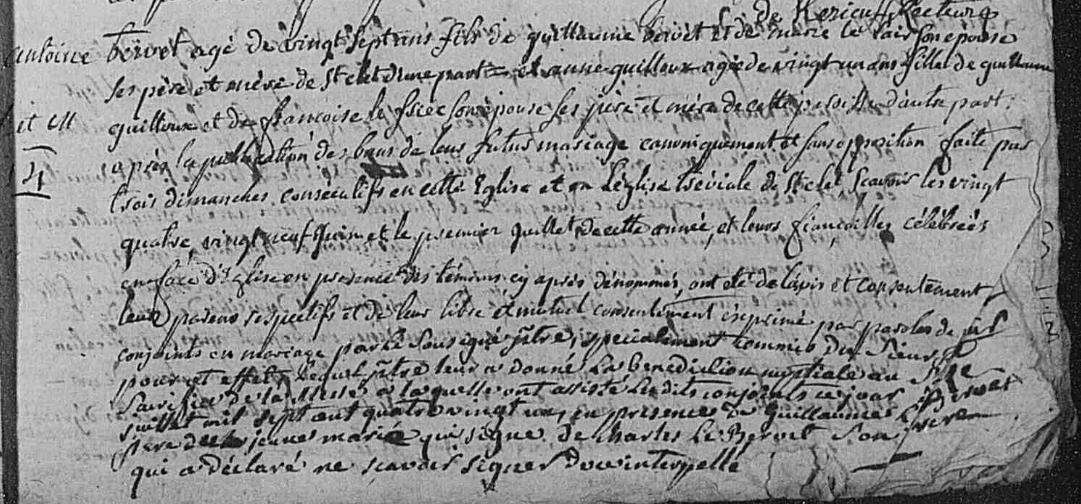 de Kericuff Recteur
antoine bervet agé de vingt sept ans fils de guillaume bervet et de marie le son epouse
ses père et mère de St clet d'une part et anne guilloux agée de vingt un ans fille de guillaume
et guilloux et de francoise le son épouse ses père et mère de cette paroisse d'autre part.
après la publication des bans de leur futur mariage canoniquement et sans opposition faite par
trois dimanches consecutifs en cette Eglise et en L'église tréviale de St clet scavoir les vingt
quatre, vingt neuf Juin et le premier Juillet de cette année, et leurs fiançailles célébrées
en face d'Eglise en presence des temoins cy après dénommés, ont eté de l'avis et consentement
leur parens respectifs et de leur libre et mutuel consentement exprimé par paroles de
conjoints en mariage par le Soussigné prêtre, specialement commis du Sieur
pour cet effet, Lequel prêtre leur a donné La bénédiction nuptiale au St
Sacrifice de la Messe a laquelle ont assisté Lesdits conjoints ce jour
juillet mil sept cent quatre vingt un, en presence de Guillaume Bervet
père de jeune marié qui signe, de charles Le Bervet son frere
qui a déclaré ne scavoir signer de ce interpellé